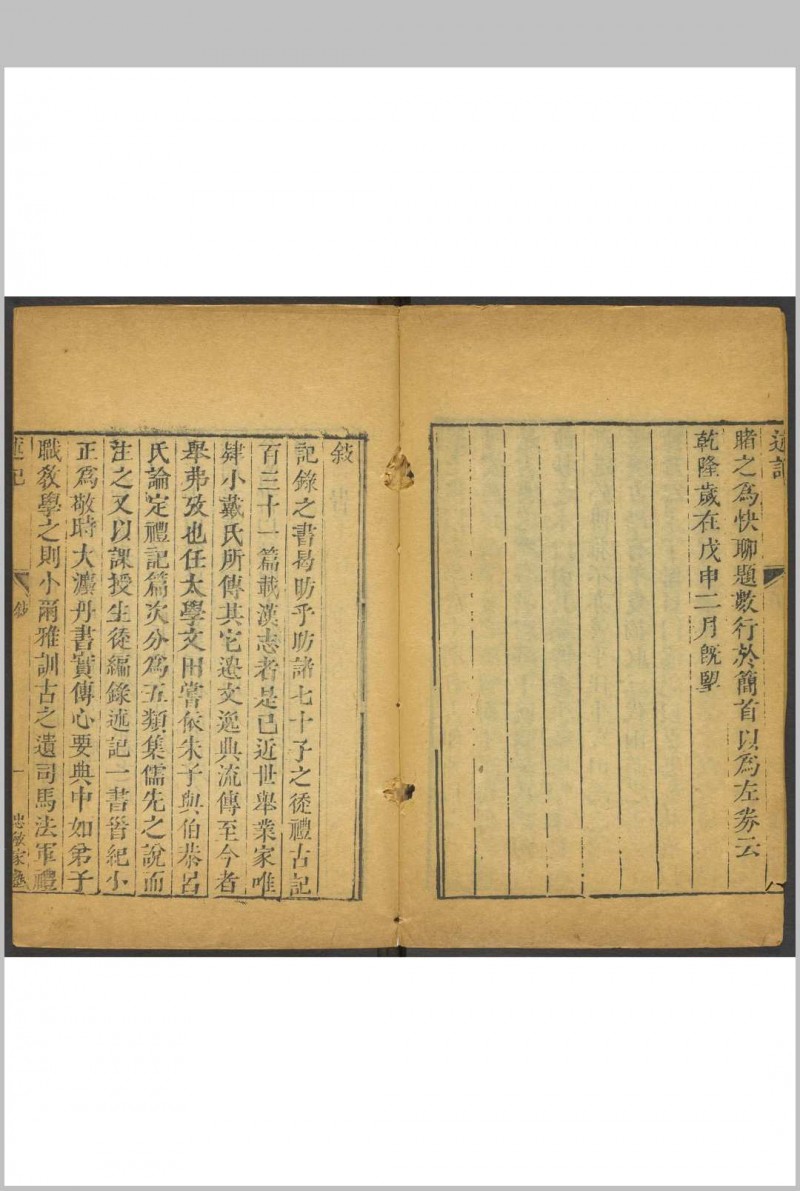 述記
睹之爲快聊題數行於簡首以爲左券云
乾隆歲在戊申二月旣望
敍
記錄之書曷昉乎昉諸七十子之徒禮古記
百三十一篇載漢志者是已近世舉業家唯
肄小戴氏所傳其它遺文逸典流傳至今者
舉弗攷也任太學文田嘗依朱子與伯恭呂
氏論定禮記篇次分爲五類集儒先之說而
注之又以課授生徒編錄述記一書晉紀小
正爲敬時大灋丹書實傳心要典中如弟子
職教學之則小爾雅訓古之遺司馬法軍禮
述記
敍
一
忠敏家塾